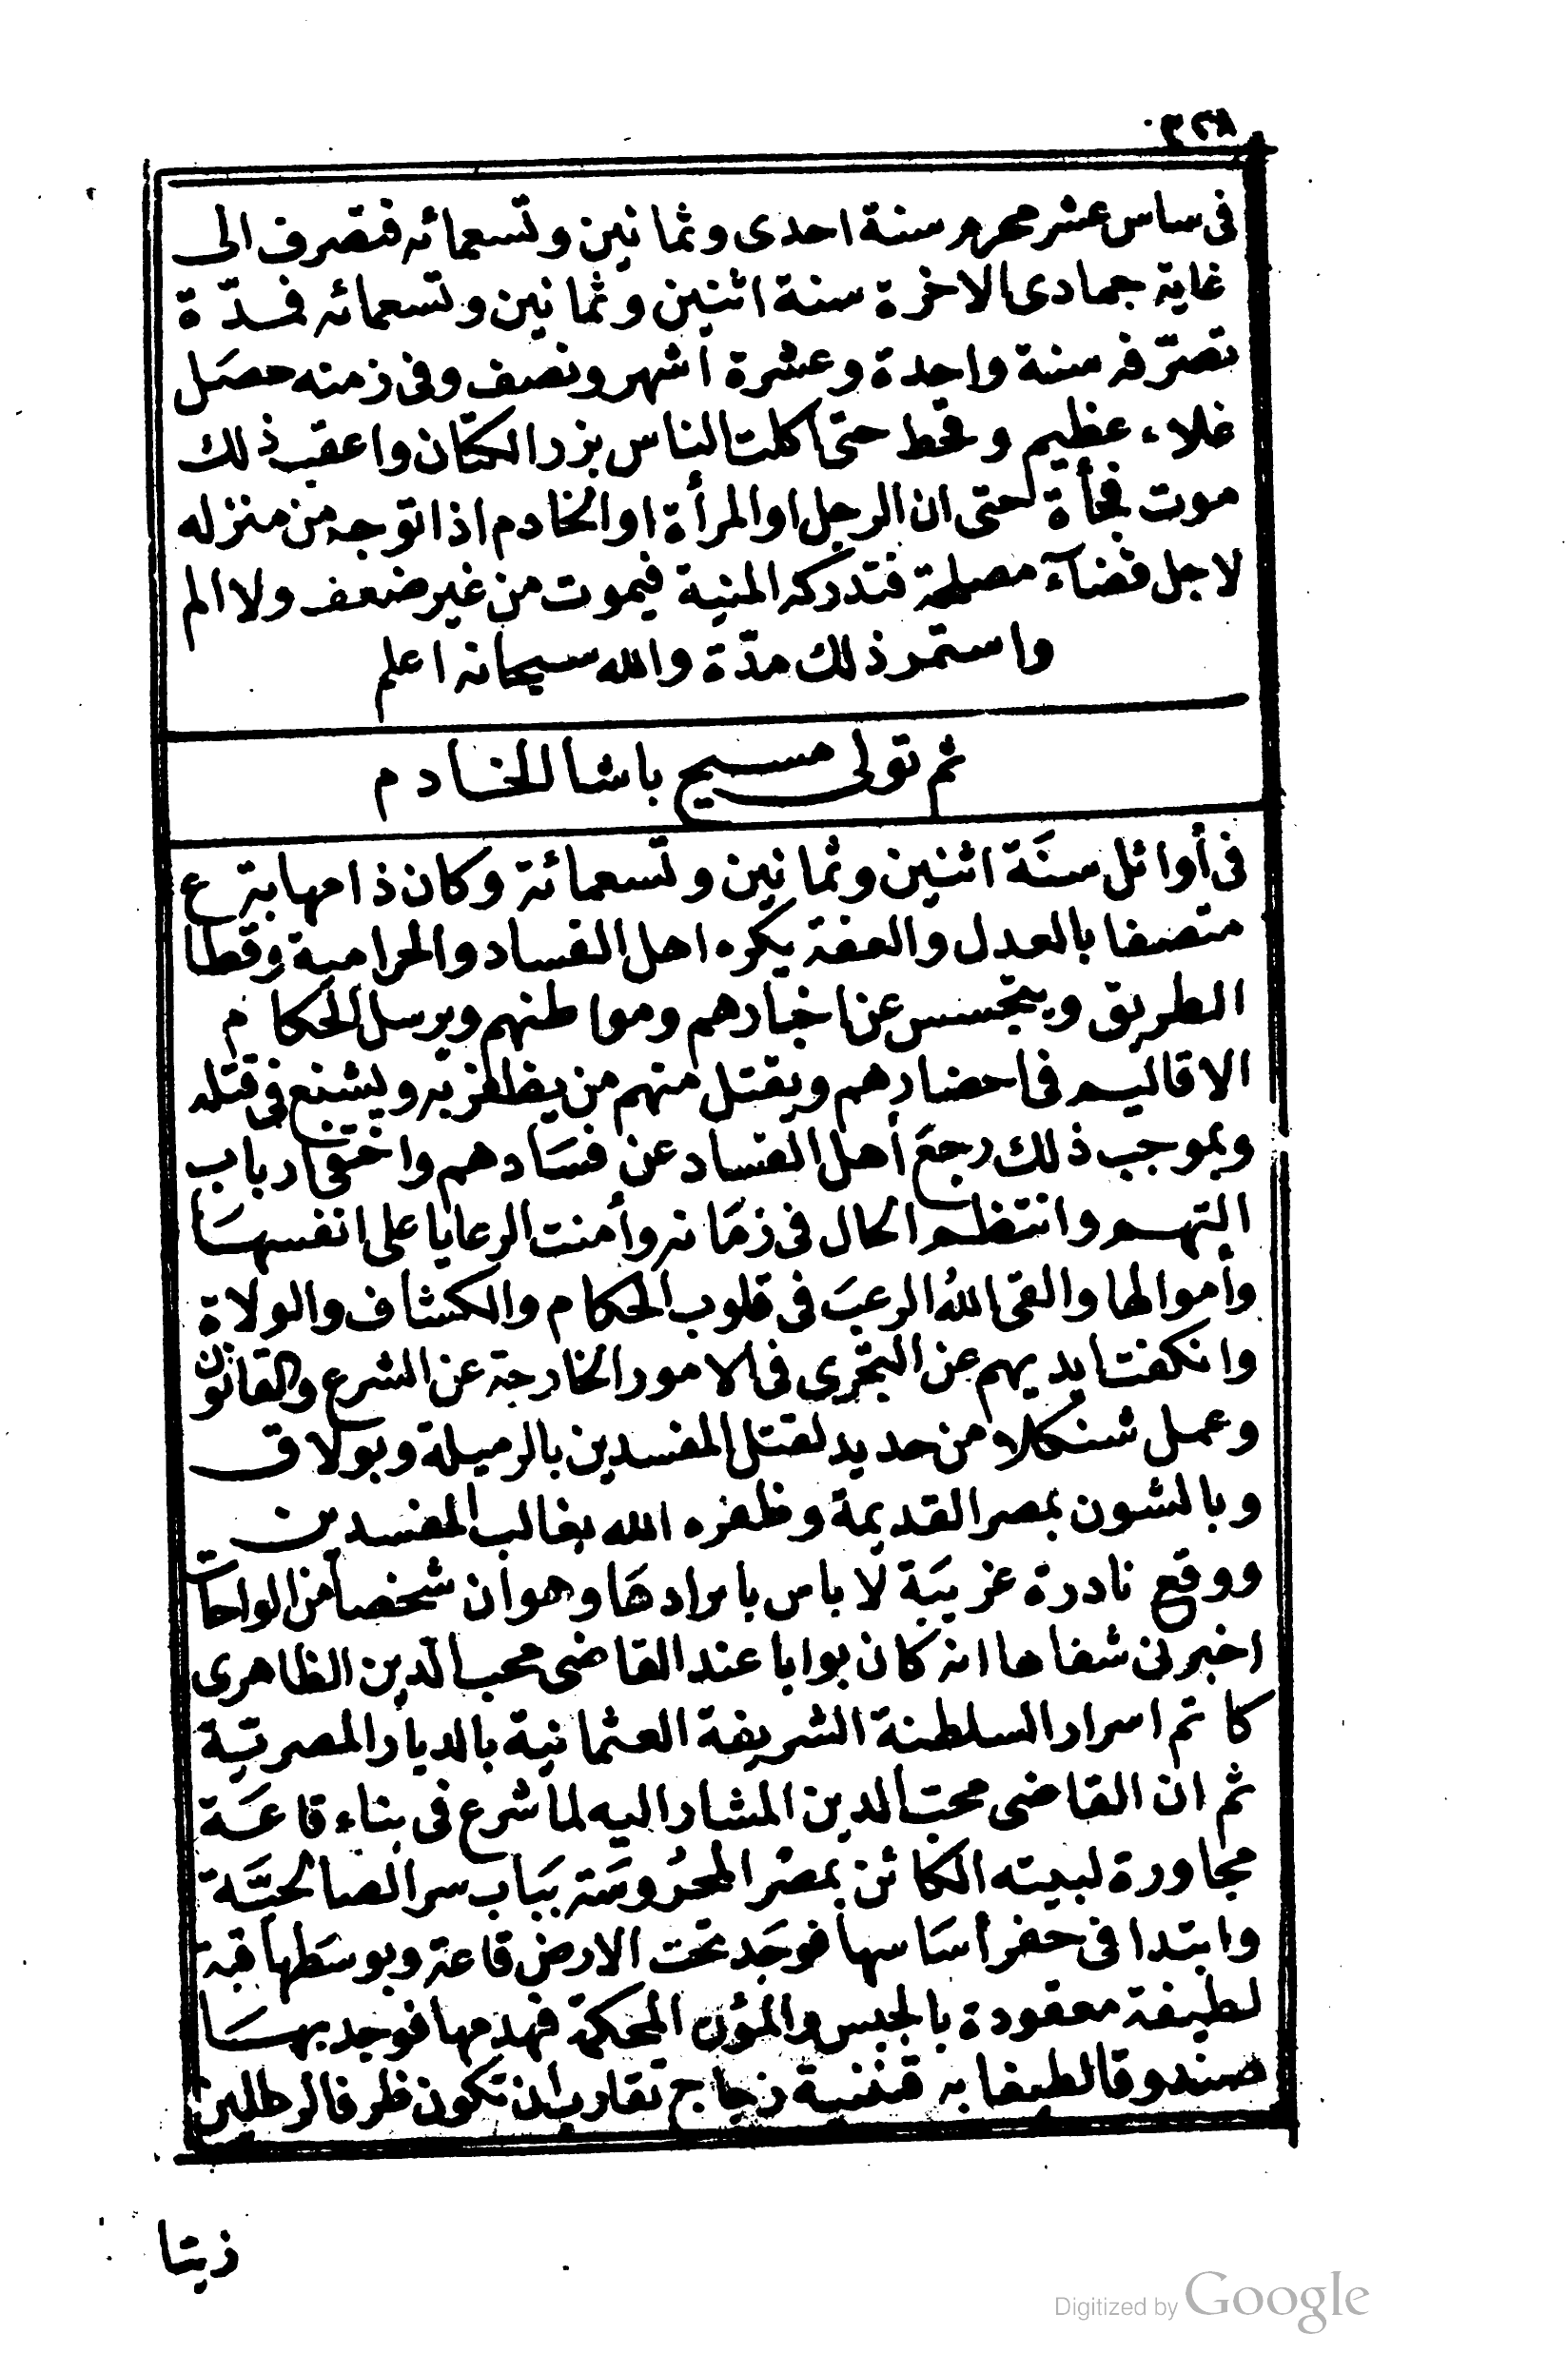 في ساس عشر محرم سنة احدى وثمانين وتسعمائه فتصرف الى
غاية جمادى الاخرة سنة اثنين وثمانين وتسعمائه فمدّة
تصرّفه سنة واحدة وعشرة أشهر ونصف وفي زمنه حصَل
غلاء عظيم وقحط حتى اكلت الناس بزر الكتّان واعقب ذلك
موت فجأة حتى ان الرجل او المرأة او الخادم اذا توجه من منزله
لاجل قضآء مصلحة فتدركه المنية فيموت من غير ضعف ولا الم
واستمر ذلك مدّة والله سبحانه اعلم
ثم تولى مسيح باشا الخادم
في أوائل سنَة اثنين وثمانين وتسعمائة وكان ذا مهابة
متصفا بالعدل والعفة يكره اهل الفساد والحرامية وقطاع
الطريق ويتجسس عن اخبارهم ومواطنهم ويرسل الحكام
الاقاليم في احضارهم ويقتل منهم من يظفر به ويشنع في قتله
وبموجب ذلك رجعَ أهل الفساد عن فسَادهم واختفى ارباب
التهم وانتظم الحال في زمَانه وأمنت الرعايا على انفسهَا
وأموالها والقى اللهُ الرعبَ في قلوب الحكام والكشاف والولاة
وانكفت ايديهم عن التجرى في الامور الخارجة عن الشرع والقانون
وعمل شنكلا من حديد لقتل المفسدين بالرميلة وبولاق
وبالشون بمصر القديمة وظفره الله بغالب المفسدين
ووقع نادرة غريبَة لا باس بايرادهَا وهو ان شخصاً من الواحات
اخبرني شفاها انه كان بوابا عند القاضى محب الدين الظاهرى
كاتم اسرار السلطنة الشريفة العثمانية بالديار المصريّة
ثم ان القاضى محبّ الدين المشار اليه لما شرع في بناء قاعَة
مجاورة لبيته الكائن بمصْر المحرُوسَة ببَاب سر الصالحيَّة
وابتدا في حفر أسَاسها فوجَد تحت الارض قاعة وبوسَطها قبة
لطيفة معقودة بالجبس والمؤن المحكمة فهدمها فوجد بهَا
صندوقا لطيفا به قننية زجاج تقارب ان تكون ظرفا لرطلين
زيتا
Digitized by Google